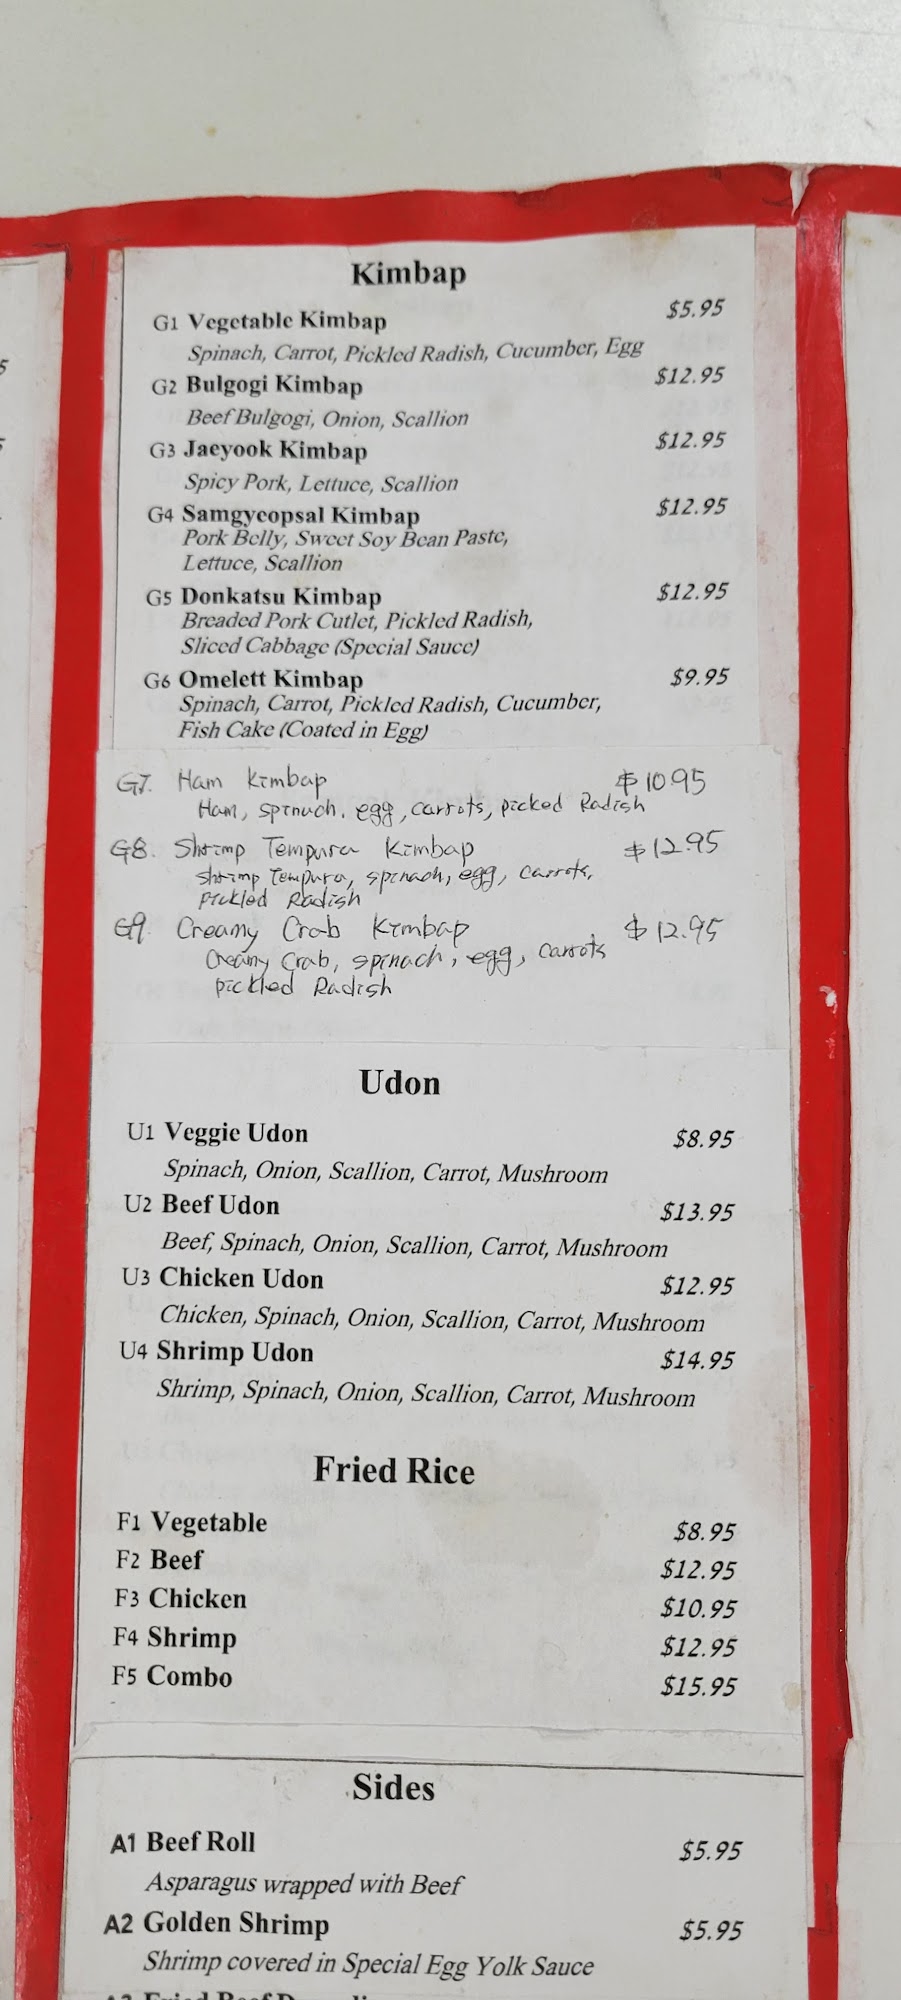 Kimbap
G1 Vegetable Kimbap $5.95
Spinach, Carrot, Pickled Radish, Cucumber, Egg
G2 Bulgogi Kimbap $12.95
Beef Bulgogi, Onion, Scallion
G3 Jaeyook Kimbap $12.95
Spicy Pork, Lettuce, Scallion
G4 Samgyeopsal Kimbap $12.95
Pork Belly, Sweet Soy Bean Paste,
Lettuce, Scallion
G5 Donkatsu Kimbap $12.95
Breaded Pork Cutlet, Pickled Radish,
Sliced Cabbage (Special Sauce)
G6 Omelett Kimbap $9.95
Spinach, Carrot, Pickled Radish, Cucumber,
Fish Cake (Coated in Egg)
G7. Ham Kimbap $10.95
Ham, spinach, egg, carrots, picked Radish
G8. Shrimp Tempura Kimbap $12.95
Shrimp Tempura, spinach, egg, carrots,
pickled Radish
G9. Creamy Crab Kimbap $12.95
Creamy Crab, spinach, egg, carrots
pickled Radish
Udon
U1 Veggie Udon $8.95
Spinach, Onion, Scallion, Carrot, Mushroom
U2 Beef Udon $13.95
Beef, Spinach, Onion, Scallion, Carrot, Mushroom
U3 Chicken Udon $12.95
Chicken, Spinach, Onion, Scallion, Carrot, Mushroom
U4 Shrimp Udon $14.95
Shrimp, Spinach, Onion, Scallion, Carrot, Mushroom
Fried Rice
F1 Vegetable $8.95
F2 Beef $12.95
F3 Chicken $10.95
F4 Shrimp $12.95
F5 Combo $15.95
Sides
A1 Beef Roll $5.95
Asparagus wrapped with Beef
A2 Golden Shrimp $5.95
Shrimp covered in Special Egg Yolk Sauce